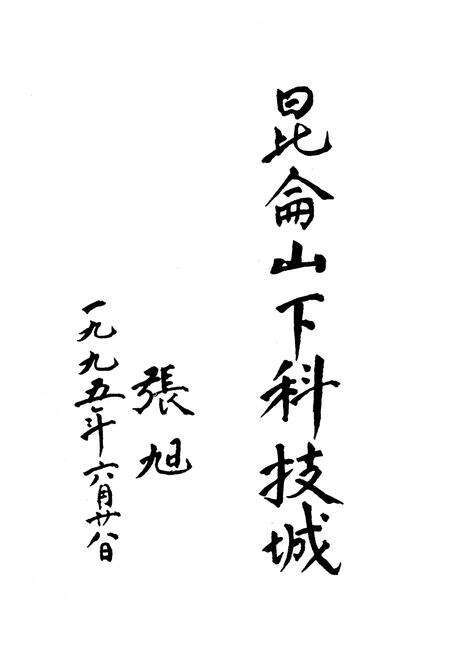 昆侖山下科技城
張旭
一九九五年六月廿八日